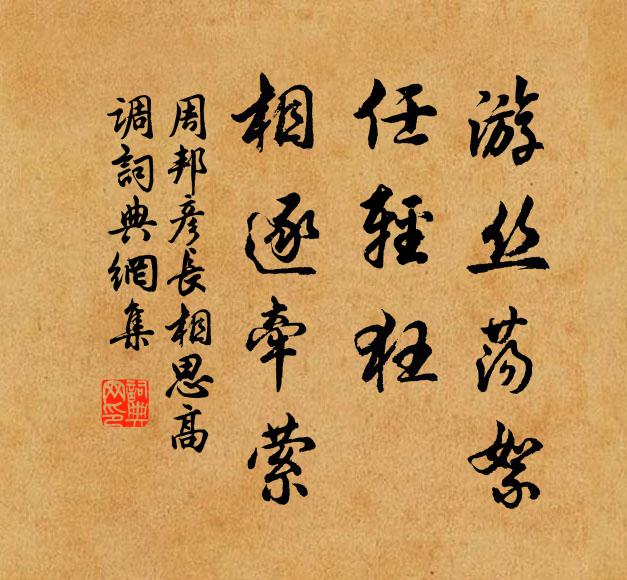 游丝荡絮
任輕狂
相逐牽萦
周邦彦長相思高
调詞典網集
詞典网印